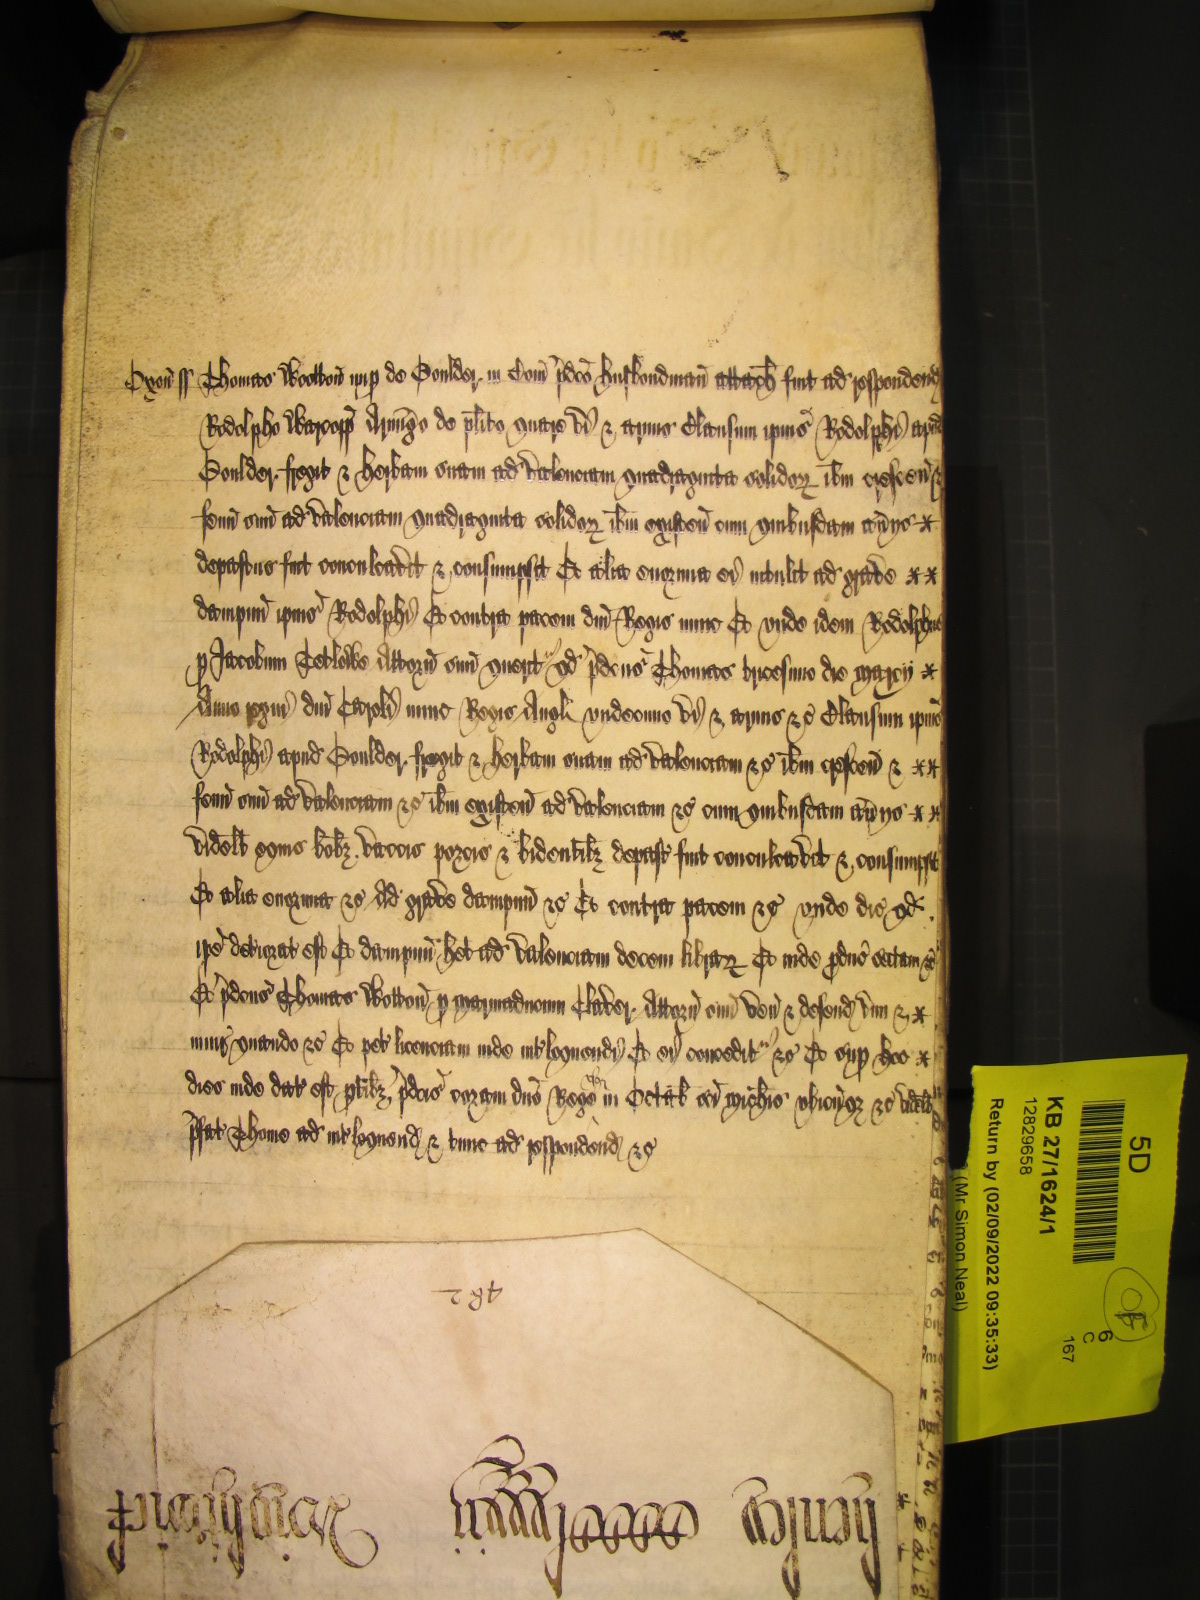 Oxon ss Thomas Wootton nup de Goulder in Com p̃dco husbondman attach fuit ad respondend
Rodolpho Warcopp Armigo de plito quare vi & armis Clausum ipius Rodolphi apud
Goulder fregit & herbam suam ad valenciam quadraginta solidoꝝ ibm crescen &
fenu suu ad valenciam quadraginta solidoꝝ ibm existen cum quibusdam aviys *
depastus fuit conculcavit & consumpsit Et alia enormia ei intulit ad grave **
dampnu ipius Rodolphi Et contra pacem dni Regis nunc Et unde idem Rodolphus
p Jacobum Tetlowe Attorn suu querit qd p̃dcus Thomas tricesimo die Marcij *
Anno regni dni Caroli nunc Regis Angl undecimo vi & armis &c Clausum ipius
Rodolphi apud Goulder fregit & herbam suam ad valenciam &c ibm crescen & **
fenu suu ad valenciam &c ibm existen ad valenciam &c cum quibusdam aviys **
videlt equis bobȝ vaccis porcis & bidentibȝ depast fuit conculcavit & consumpsit
Et alia enormia &c Ad grave dampnu &c Et contra pacem &c unde dic qd
ipe deteriorat est Et dampnu het ad valenciam decem librarꝝ Et inde pduc sectam &c
Et p̃dcus Thomas Wotton p Marmaducum Claver Attorn suu ven & defend vim & *
iniur quando &c Et pet licenciam inde interloquendi Et ei conceditr &c Et sup hoc *
dies inde dat est ptibȝ p̃dcis coram dno Rege in Octab sci Michis ubicunqȝ &c videlt
p̃fat Thome ad interloquend & tunc ad respondend &c
482
5D
6
C
167
KB 27/1624/1
12829658
Return by (02/09/2022 09:35:33)
(Mr Simon Neal)